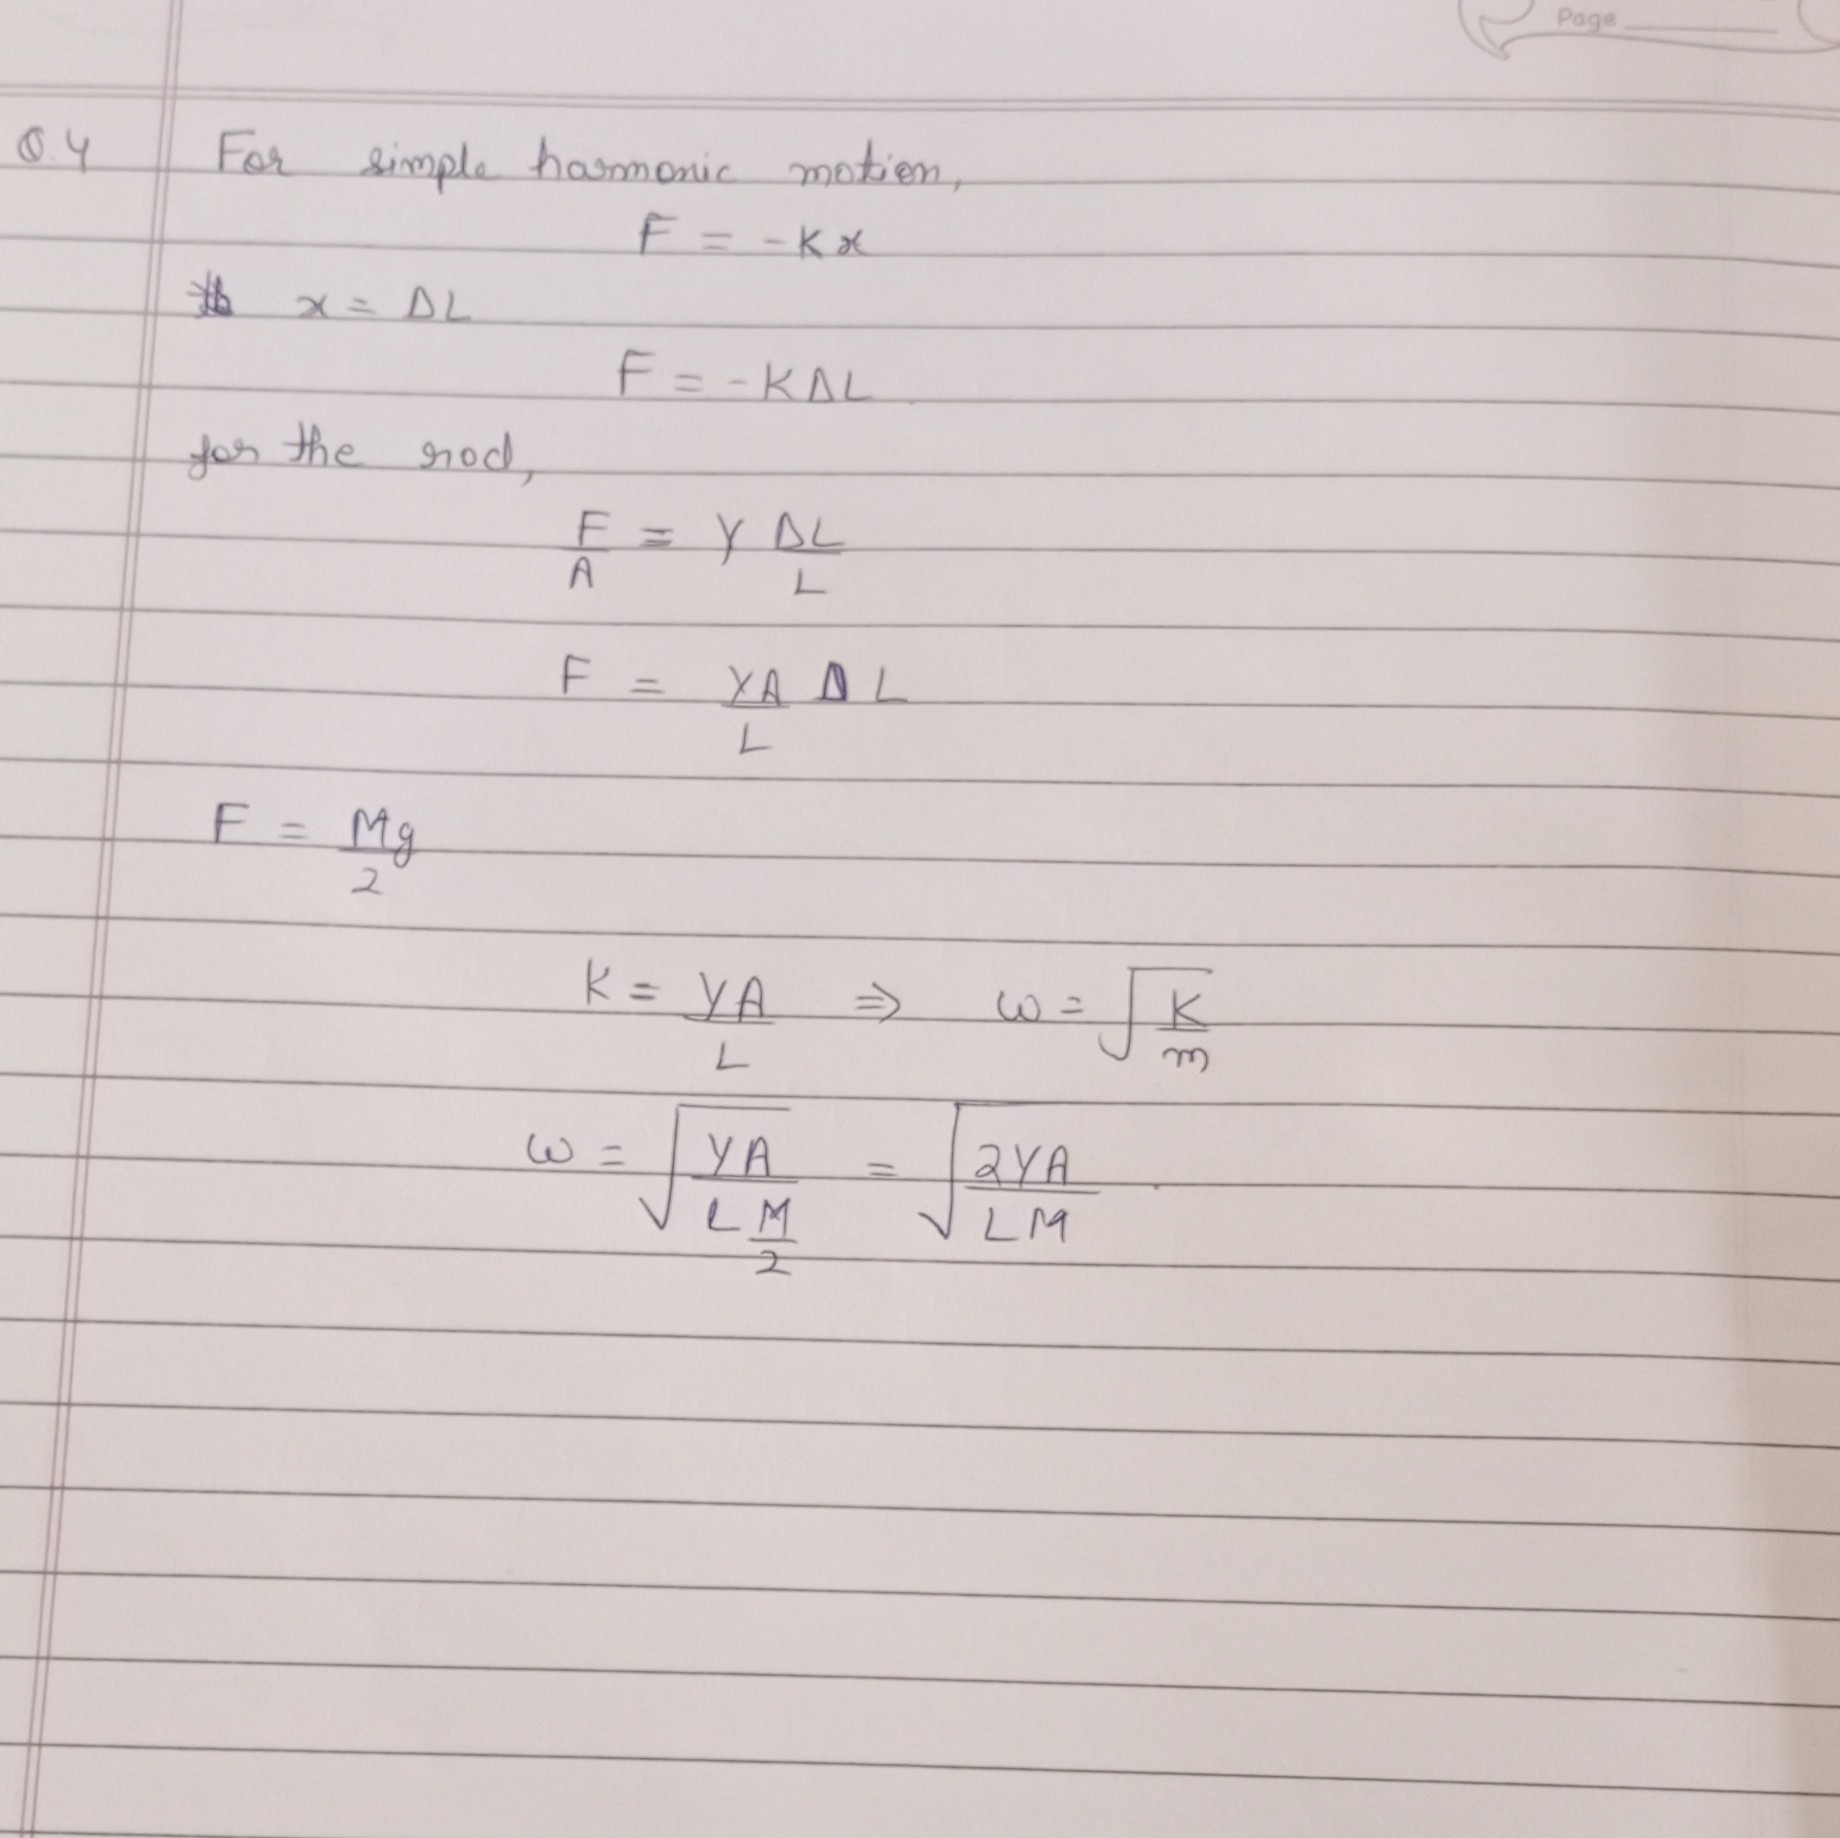 Page
Q.4 For simple harmonic motion,
F = -Kx
x = ΔL
F = -KΔL
for the rod,
F/A = Y ΔL/L
F = YA/L ΔL
F = Mg/2
K = YA/L ⇒ ω = √(K/m)
ω = √(YA/(L M/2)) = √(2YA/(LM))